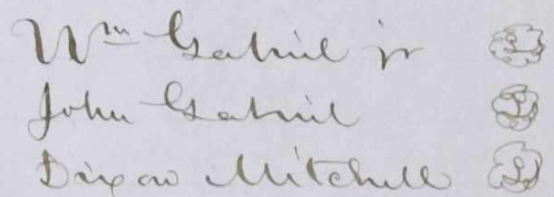 Wm Gabriel jr
John Gabriel
Dixon Mitchell